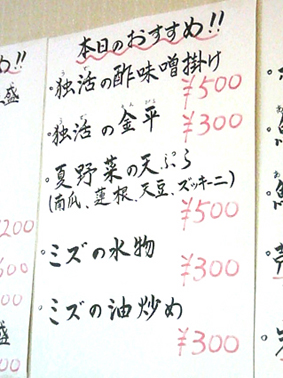 本日のおすすめ!!
・独活の酢味噌掛け
¥500
・独活の金平
¥300
・夏野菜の天ぷら
(南瓜、蓮根、天豆、ズッキーニ)
¥500
・ミズの水物
¥300
・ミズの油炒め
¥300
め!!
盛
200
500
00
盛
00